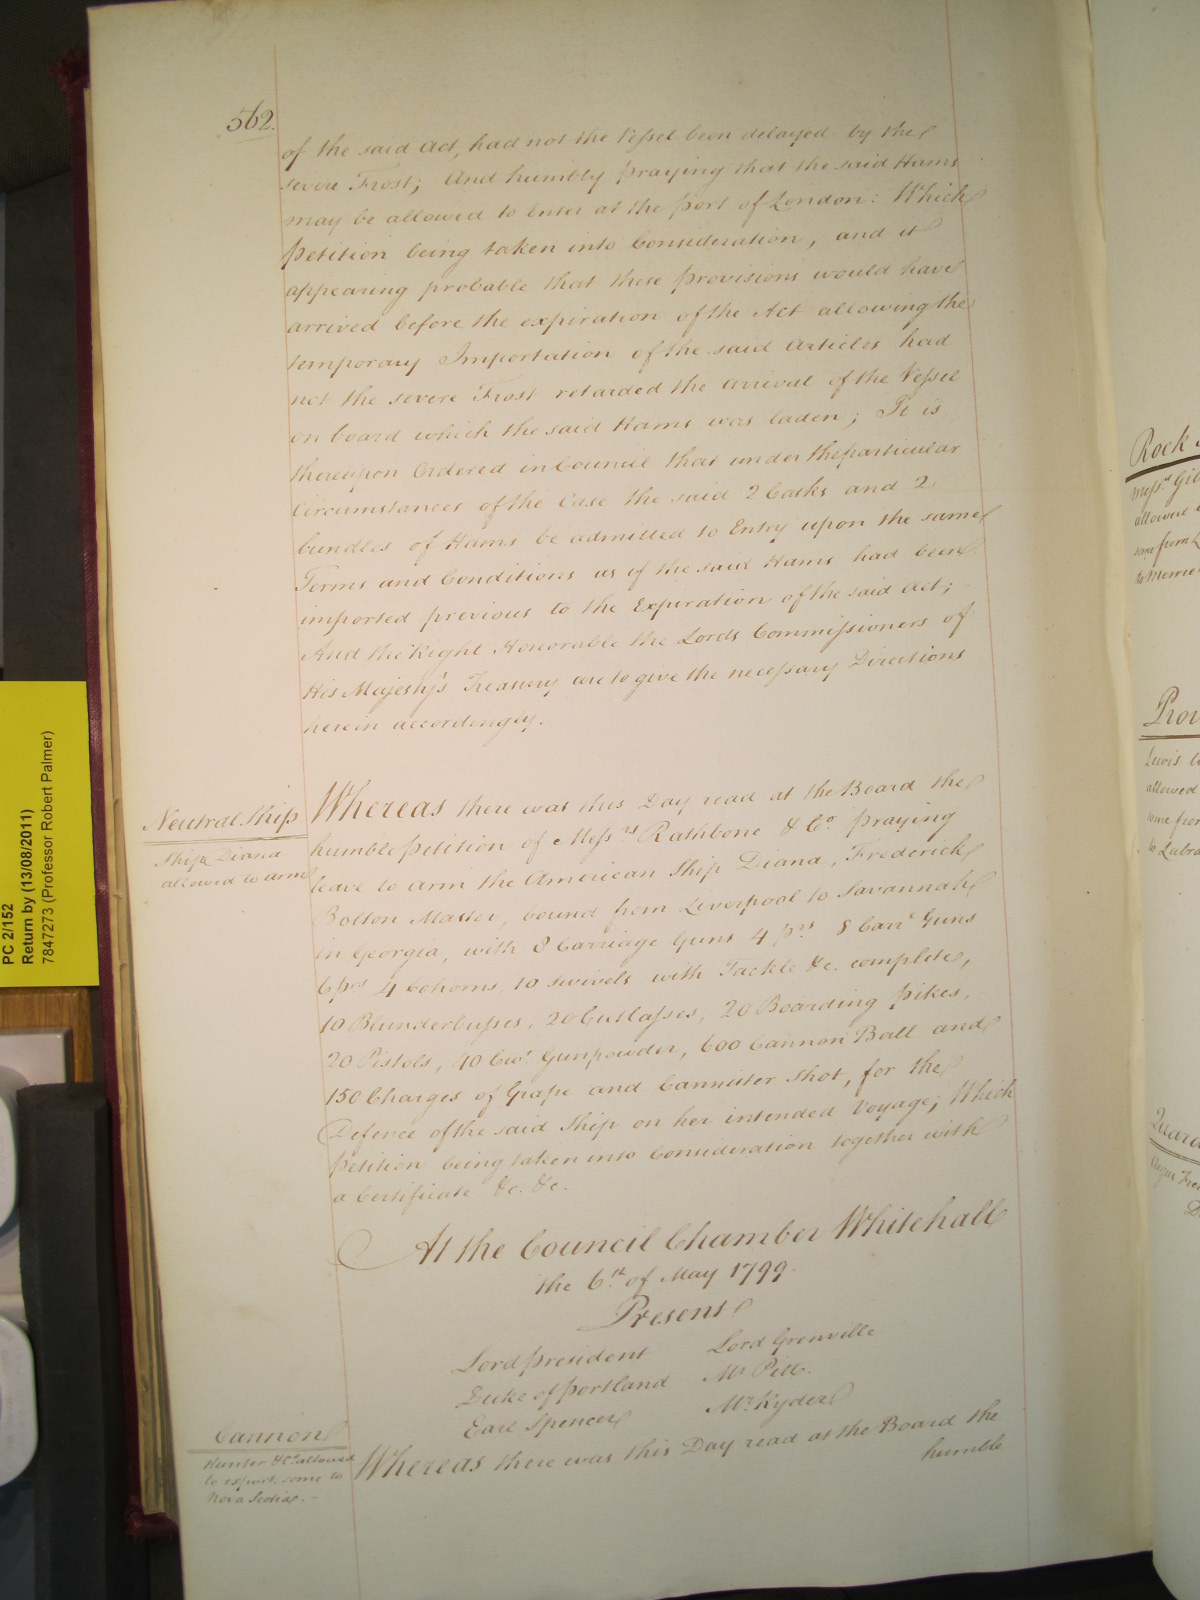 562.
of the said Act, had not the Vessel been delayed by the
severe Frost; And humbly praying that the said Hams
may be allowed to Enter at the port of London: Which
Petition being taken into Consideration, and it
appearing probable that these provisions would have
arrived before the expiration of the Act allowing the
temporary Importation of the said Articles had
not the severe Frost retarded the arrival of the Vessel
on board which the said Hams was laden; It is
thereupon Ordered in Council that under the particular
Circumstances of the Case the said 2 Casks and 2
bundles of Hams be admitted to Entry upon the same
Terms and Conditions as if the said Hams had been
imported previous to the Expiration of the said Act;
And the Right Honorable the Lords Commissioners of
His Majesty's Treasury are to give the necessary Directions
herein accordingly.
Neutral Ship
Ship Diana
allowed to arm
Whereas there was this Day read at the Board the
humble petition of Messrs Rathbone & Co. praying
leave to arm the American Ship Diana, Frederick
Bolton Master, bound from Liverpool to Savannah
in Georgia, with 8 Carriage Guns 4 prs 8 Carre Guns
6 prs 4 Cohorns, 10 swivels with Tackle &c. complete,
10 Blunderbusses, 20 Cutlasses, 20 Boarding pikes,
20 Pistols, 40 Cwt Gunpowder, 600 Cannon Ball and
150 Charges of Grape and Cannister shot, for the
Defence of the said Ship on her intended Voyage; Which
Petition being taken into Consideration together with
a Certificate &c. &c.
At the Council Chamber Whitehall
the 6th of May 1799.
Present
Lord president Lord Grenville
Duke of portland Mr Pitt.
Earl Spencer Mr Ryder
Cannon
Hunter & Co allowed
to export some to
Nova Scotia.
Whereas there was this Day read at the Board the
humble
PC 2/152
Return by (13/08/2011)
7847273 (Professor Robert Palmer)
Rock
Messrs
allowed
some from
to
Lewis
allowed
some from
to Labra
Angus